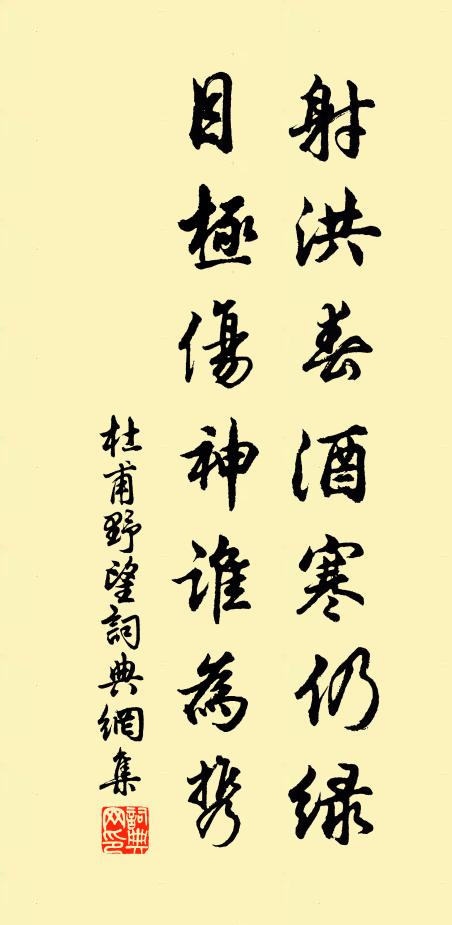 射洪春酒寒仍绿
目極傷神誰為携
杜甫野望詞典網集
詞典網印